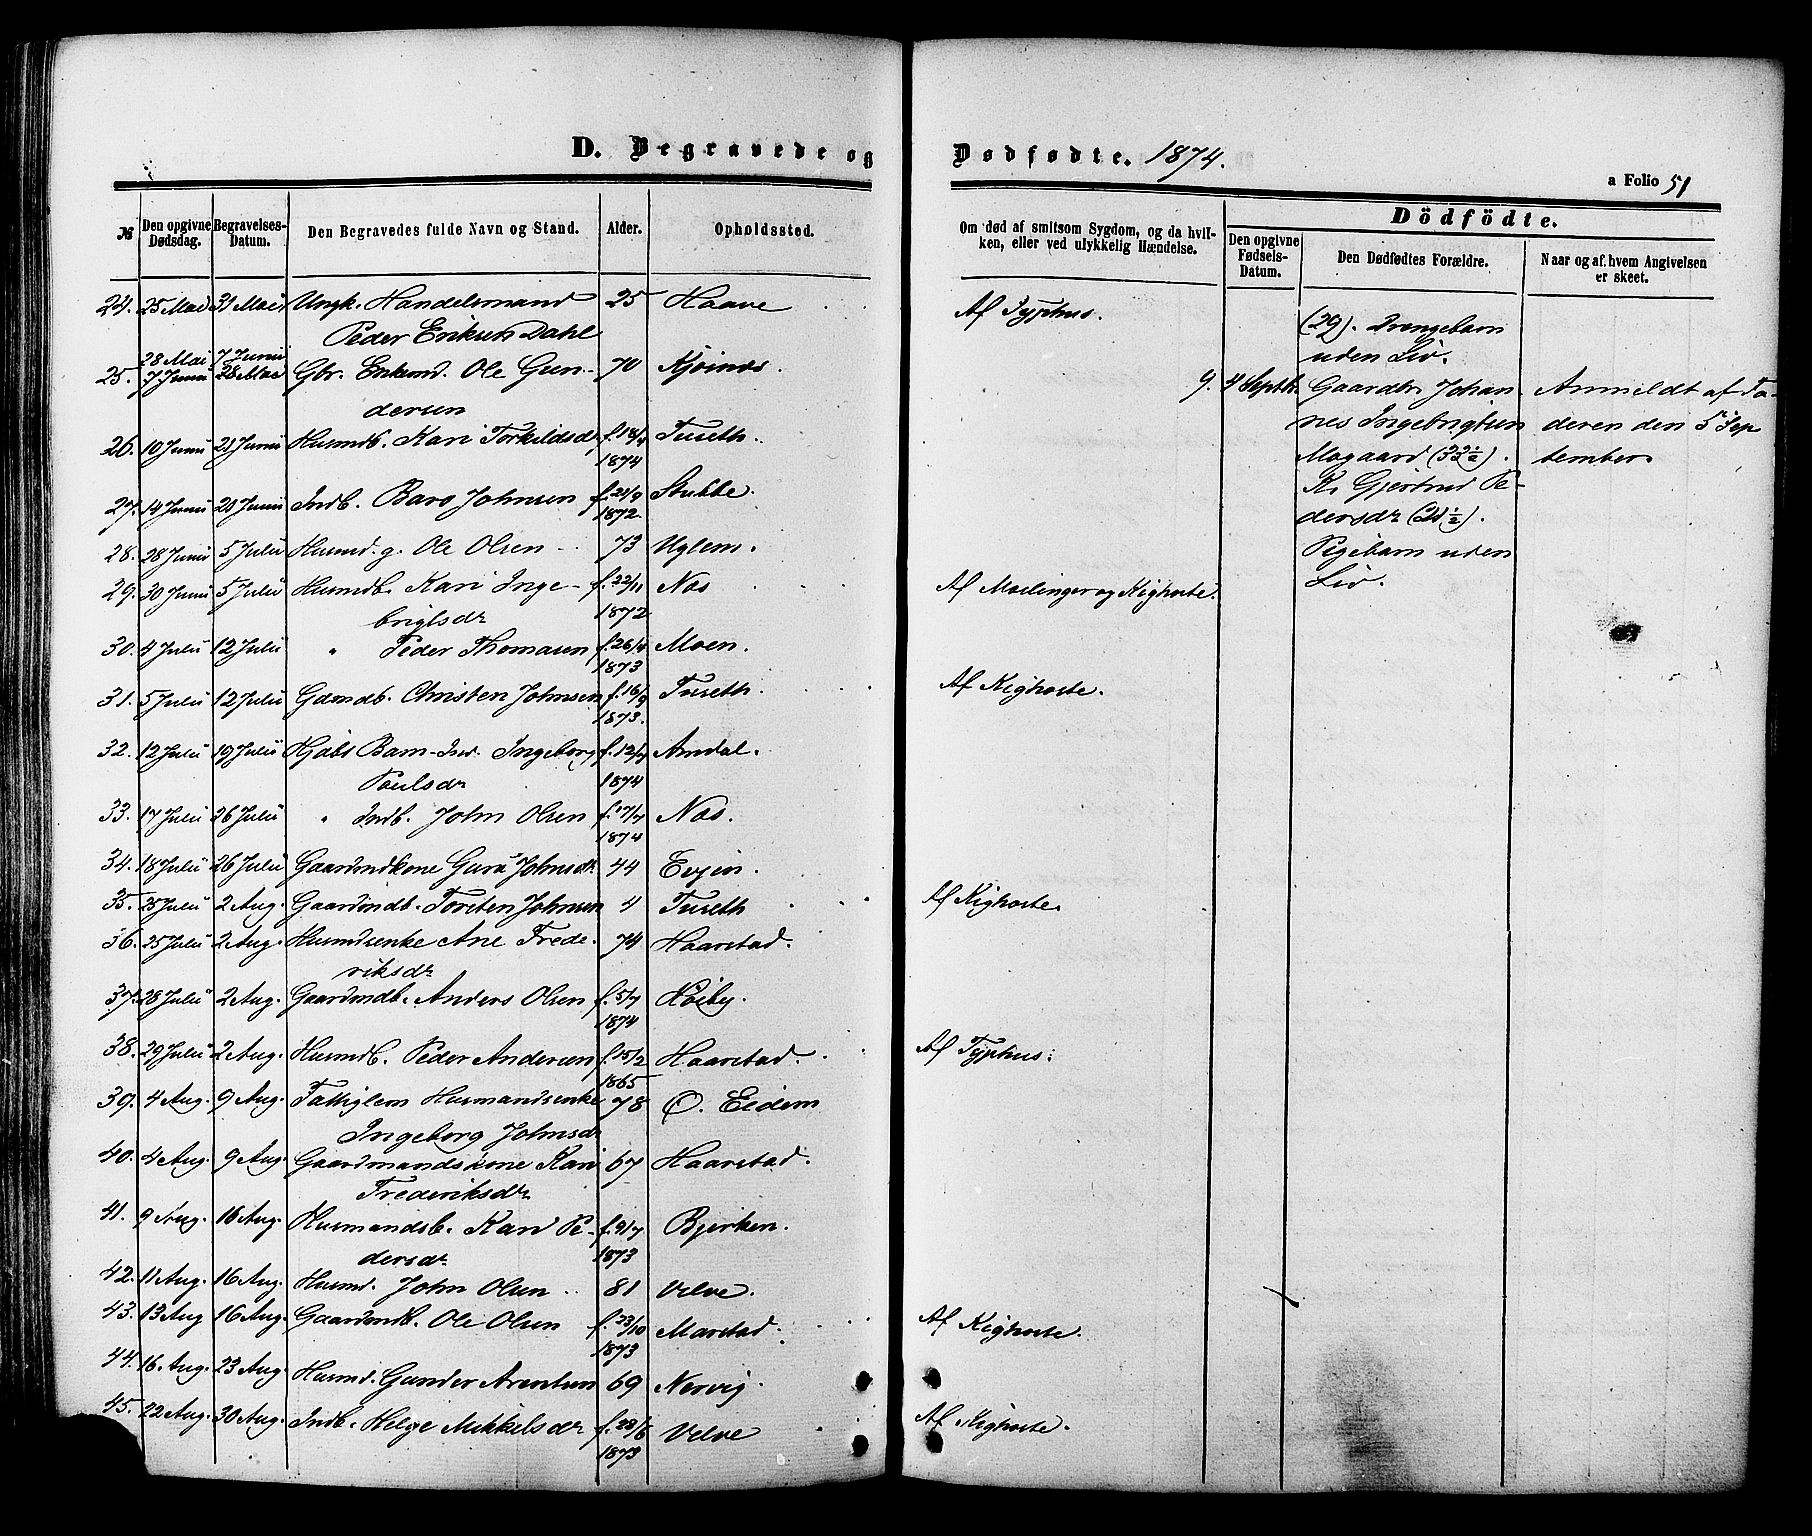 D. Begravede og
№
Den opgivne Dødsdag.
Begravelses-Datum.
Den Begravedes fulde Navn og Stand.
Alder.
Opholdssted.
24. 25 Mai 31 Mai Ungk. Handelsmand 25 Haave
Peder Eriksen Dahl
28 Mai 7 Junii
25. 7 Junii 28 Mai Gbr. Enkemd. Ole Gun- 70 Kjøsnæs
dersen
26. 10 Junii 21 Junii Husmdb. Kari Torkildsdr f. 18/4 Tuseth.
1874
27. 14 Junii 21 Junii Indb. Baro Johnsen f. 21/9 Stubbe.
1872.
28. 28 Junii 5 Julii Husmd. g. Ole Olsen 73 Uglem.
29. 30 Junii 5 Julii Husmdb. Kari Inge- f. 22/11 Næs
brigtsdr 1872
30. 4 Julii 12 Julii " Peder Thomasen f. 26/4 Moen.
1873
31. 5 Julii 12 Julii Gdmdb. Christen Johnsen f. 16/9 Tuseth.
1873.
32. 12 Julii 19 Julii Hjdbt Barn-Ind. Ingeborg f. 12/7 Amdal.
Poulsdr 1874
33. 17 Julii 26 Julii " Indb. John Olsen f. 17/7 Næs.
1874
34. 18 Julii 26 Julii Gaardmdkone Guru Johnsdr 44 Evjen.
35. 25 Julii 2 Aug. Gaardmdb. Torsten Johnsen 4 Tuseth
36. 25 Julii 2 Aug. Husmdsenke Ane Frede- 74 Haarstad.
riksdr
37. 28 Julii 2 Aug. Gaardmdb. Anders Olsen f. 5/7 Høiby.
1874
38. 29 Julii 2 Aug. Husmdb. Peder Andersen f. 15/2 Haarstad.
1865
39. 4 Aug. 9 Aug. Fattiglem Husmandsenke 78 Ø. Eidem
Ingeborg Johnsdr
40. 4 Aug. 9 Aug. Gaardmandskone Kari 67 Haarstad.
Frederiksdr
41. 9 Aug. 16 Aug. Husmandsb. Kari Pe- f. 9/7 Bjerken.
dersdr 1873
42. 11 Aug. 16 Aug. Husmd. John Olsen 81 Velve.
43. 13 Aug 16 Aug. Gaardmdb. Ole Olsen f. 23/10 Marstad.
1873
44. 16 Aug. 23 Aug. Husmd. Gunder Arentsen 69 Nervig.
45. 22 Aug. 30 Aug. Indb. Helge Mikkelsdr f. 28/6 Velve
1873
Dødfødte. 1874.
a Folio 51
Om død af smitsom Sygdom, og da hvil-
ken, eller ved ulykkelig Hændelse.
Dödfödte.
Den opgivne Fødsels-Datum.
Den Dødfødtes Forældre.
Naar og af hvem Angivelsen er skeet.
Af Typhus.
(29). Drengebarn
uden Liv.
9. 4 Septb. Gaardbr. Johan- Anmeldt af Fa-
nes Ingebrigtsen deren den 5 Sep
Mogaard (33½). tember.
K. Gjertrud Pe-
dersdr (21½).
Pigebarn uden
Liv.
Af Mæslinger og Kighoste.
Af Kighoste.
Af Kighoste.
Af Typhus.
Af Kighoste.
Af Kighoste.